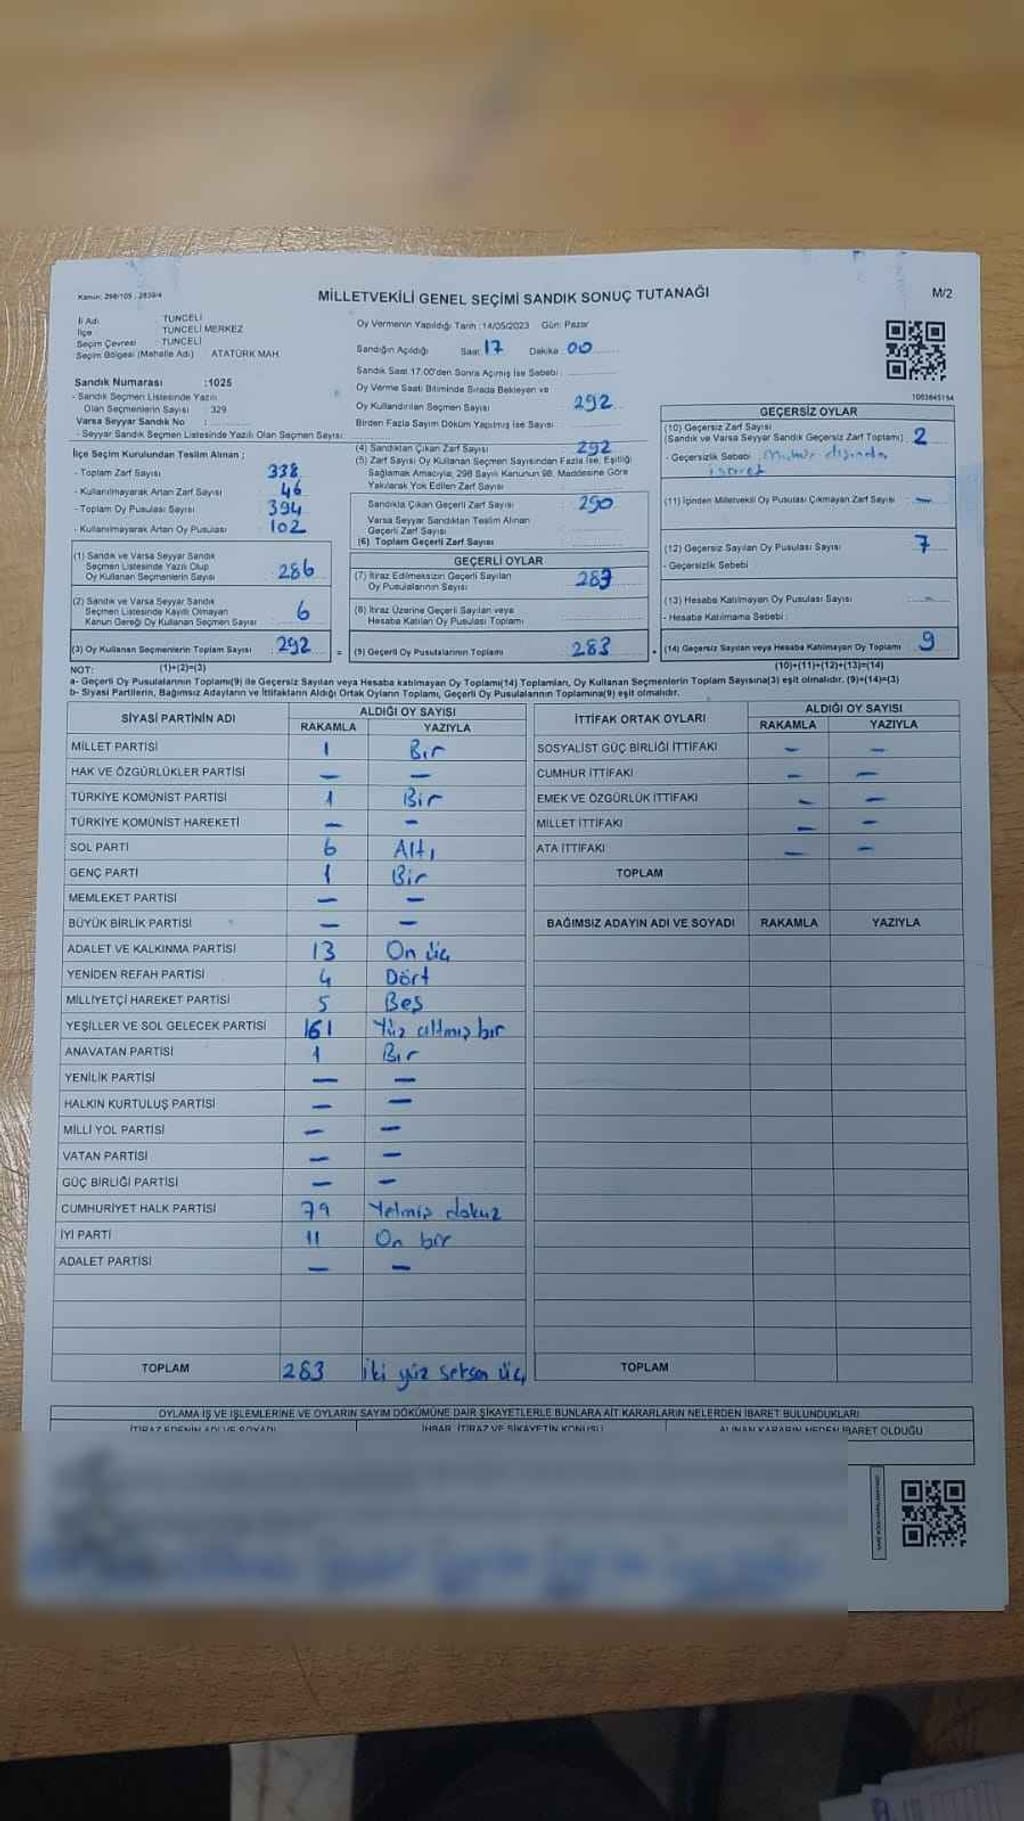 Kanun: 298/105 , 2839/4
MİLLETVEKİLİ GENEL SEÇİMİ SANDIK SONUÇ TUTANAĞI
M/2
İl Adı : TUNCELİ
İlçe : TUNCELİ MERKEZ
Seçim Çevresi : TUNCELİ
Seçim Bölgesi (Mahalle Adı) ATATÜRK MAH.
Sandık Numarası :1025
- Sandık Seçmen Listesinde Yazılı
Olan Seçmenlerin Sayısı : 329
Varsa Seyyar Sandık No :
- Seyyar Sandık Seçmen Listesinde Yazılı Olan Seçmen Sayısı:
İlçe Seçim Kurulundan Teslim Alınan :
- Toplam Zarf Sayısı : 338
- Kullanılmayarak Artan Zarf Sayısı : 46
- Toplam Oy Pusulası Sayısı : 394
- Kullanılmayarak Artan Oy Pusulası : 102
(1) Sandık ve Varsa Seyyar Sandık
Seçmen Listesinde Yazılı Olup
Oy Kullanan Seçmenlerin Sayısı : 286
(2) Sandık ve Varsa Seyyar Sandık
Seçmen Listesinde Kayıtlı Olmayan
Kanun Gereği Oy Kullanan Seçmen Sayısı : 6
(3) Oy Kullanan Seçmenlerin Toplam Sayısı : 292 =
Oy Vermenin Yapıldığı Tarih :14/05/2023 Gün: Pazar
Sandığın Açıldığı Saat: 17 Dakika : 00
Sandık Saat 17.00'den Sonra Açılmış İse Sebebi :
Oy Verme Saati Bitiminde Sırada Bekleyen ve
Oy Kullandırılan Seçmen Sayısı 292
Birden Fazla Sayım Döküm Yapılmış İse Sayısı :
(4) Sandıktan Çıkan Zarf Sayısı : 292
(5) Zarf Sayısı Oy Kullanan Seçmen Sayısından Fazla İse, Eşitliği
Sağlamak Amacıyla, 298 Sayılı Kanunun 98. Maddesine Göre
Yakılarak Yok Edilen Zarf Sayısı :
Sandıkla Çıkan Geçerli Zarf Sayısı : 290
Varsa Seyyar Sandıktan Teslim Alınan
Geçerli Zarf Sayısı :
(6) Toplam Geçerli Zarf Sayısı :
GEÇERLİ OYLAR
(7) İtiraz Edilmeksizin Geçerli Sayılan
Oy Pusulalarının Sayısı : 283
(8) İtiraz Üzerine Geçerli Sayılan veya
Hesaba Katılan Oy Pusulası Toplamı :
(9) Geçerli Oy Pusulalarının Toplamı : 283 +
1003645194
GEÇERSİZ OYLAR
(10) Geçersiz Zarf Sayısı
(Sandık ve Varsa Seyyar Sandık Geçersiz Zarf Toplamı) : 2
- Geçersizlik Sebebi : Mühür dışında
işaret
(11) İçinden Milletvekili Oy Pusulası Çıkmayan Zarf Sayısı : —
(12) Geçersiz Sayılan Oy Pusulası Sayısı : 7
- Geçersizlik Sebebi
(13) Hesaba Katılmayan Oy Pusulası Sayısı : —
- Hesaba Katılmama Sebebi :
(14) Geçersiz Sayılan veya Hesaba Katılmayan Oy Toplamı : 9
NOT: (1)+(2)=(3)
(10)+(11)+(12)+(13)=(14)
a- Geçerli Oy Pusulalarının Toplamı(9) ile Geçersiz Sayılan veya Hesaba katılmayan Oy Toplamı(14) Toplamları, Oy Kullanan Seçmenlerin Toplam Sayısına(3) eşit olmalıdır. (9)+(14)=(3)
b- Siyasi Partilerin, Bağımsız Adayların ve İttifakların Aldığı Ortak Oyların Toplamı, Geçerli Oy Pusulalarının Toplamına(9) eşit olmalıdır.
SİYASİ PARTİNİN ADI ALDIĞI OY SAYISI
RAKAMLA YAZIYLA
MİLLET PARTİSİ 1 Bir
HAK VE ÖZGÜRLÜKLER PARTİSİ — —
TÜRKİYE KOMÜNİST PARTİSİ 1 Bir
TÜRKİYE KOMÜNİST HAREKETİ — —
SOL PARTİ 6 Altı
GENÇ PARTİ 1 Bir
MEMLEKET PARTİSİ — —
BÜYÜK BİRLİK PARTİSİ — —
ADALET VE KALKINMA PARTİSİ 13 On üç
YENİDEN REFAH PARTİSİ 4 Dört
MİLLİYETÇİ HAREKET PARTİSİ 5 Beş
YEŞİLLER VE SOL GELECEK PARTİSİ 161 Yüz altmış bir
ANAVATAN PARTİSİ 1 Bir
YENİLİK PARTİSİ — —
HALKIN KURTULUŞ PARTİSİ — —
MİLLİ YOL PARTİSİ — —
VATAN PARTİSİ — —
GÜÇ BİRLİĞİ PARTİSİ — —
CUMHURİYET HALK PARTİSİ 79 Yetmiş dokuz
İYİ PARTİ 11 On bir
ADALET PARTİSİ — —
TOPLAM 283 İki yüz seksen üç
İTTİFAK ORTAK OYLARI ALDIĞI OY SAYISI
RAKAMLA YAZIYLA
SOSYALİST GÜÇ BİRLİĞİ İTTİFAKI — —
CUMHUR İTTİFAKI — —
EMEK VE ÖZGÜRLÜK İTTİFAKI — —
MİLLET İTTİFAKI — —
ATA İTTİFAKI — —
TOPLAM
BAĞIMSIZ ADAYIN ADI VE SOYADI RAKAMLA YAZIYLA
TOPLAM
OYLAMA İŞ VE İŞLEMLERİNE VE OYLARIN SAYIM DÖKÜMÜNE DAİR ŞİKAYETLERLE BUNLARA AİT KARARLARIN NELERDEN İBARET BULUNDUKLARI
İTİRAZ EDENİN ADI VE SOYADI İHBAR, İTİRAZ VE ŞİKAYETİN KONUSU ALINAN KARARIN NEDEN İBARET OLDUĞU